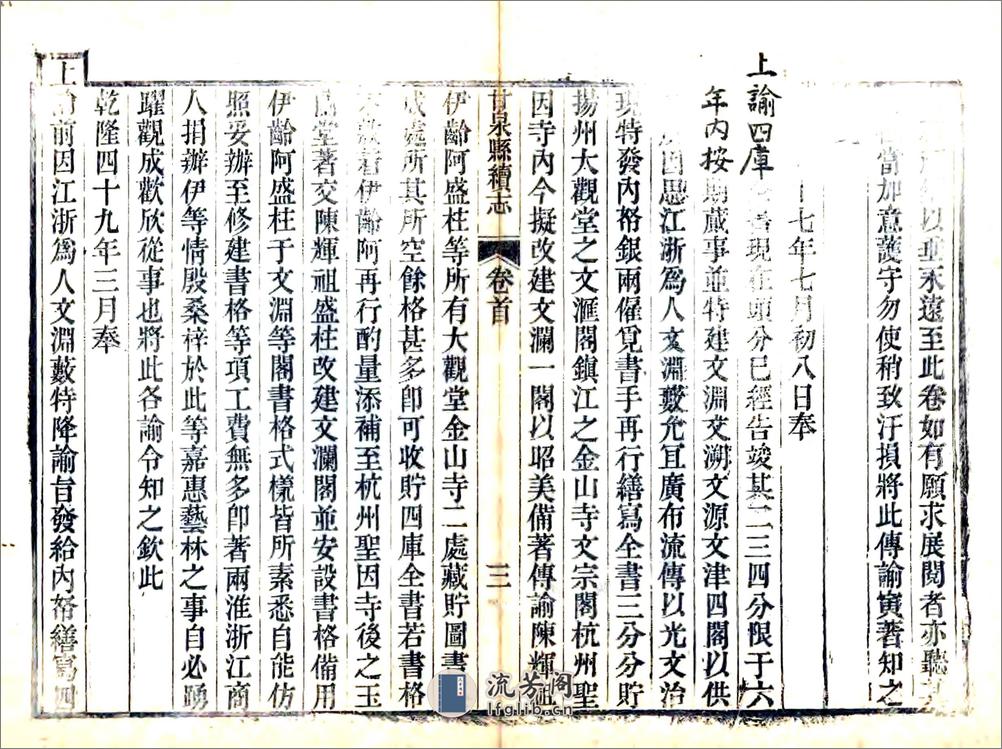 以垂永遠至此卷如有願求展閱者亦聽之
當加意護守勿使稍致汙損將此傳諭寅著知之
十七年七月初八日奉
上諭四庫全書現在頭分已經告竣其二三四分限于六
年內按期蕆事並特建文淵文溯文源文津四閣以供
因思江浙爲人文淵藪允宜廣布流傳以光文治
現特發內帑銀兩僱覓書手再行繕寫全書三分分貯
揚州大觀堂之文滙閣鎮江之金山寺文宗閣杭州聖
因寺內今擬改建文瀾一閣以昭美備著傳諭陳輝祖
甘泉縣續志
卷首
三
伊齡阿盛柱等所有大觀堂金山寺二處藏貯圖書
成處所其所空餘格甚多卽可收貯四庫全書若書格
著伊齡阿再行酌量添補至杭州聖因寺後之玉
蘭堂著交陳輝祖盛柱改建文瀾閣並安設書格備用
伊齡阿盛柱于文淵等閣書格式樣皆所素悉自能仿
照妥辦至修建書格等項工費無多卽著兩淮浙江商
人捐辦伊等情殷桑梓於此等嘉惠藝林之事自必踴
躍觀成歡欣從事也將此各諭令知之欽此
乾隆四十九年三月奉
上諭前因江浙爲人文淵藪特降諭旨發給內帑繕寫四
流芳閣
lfglib.cn